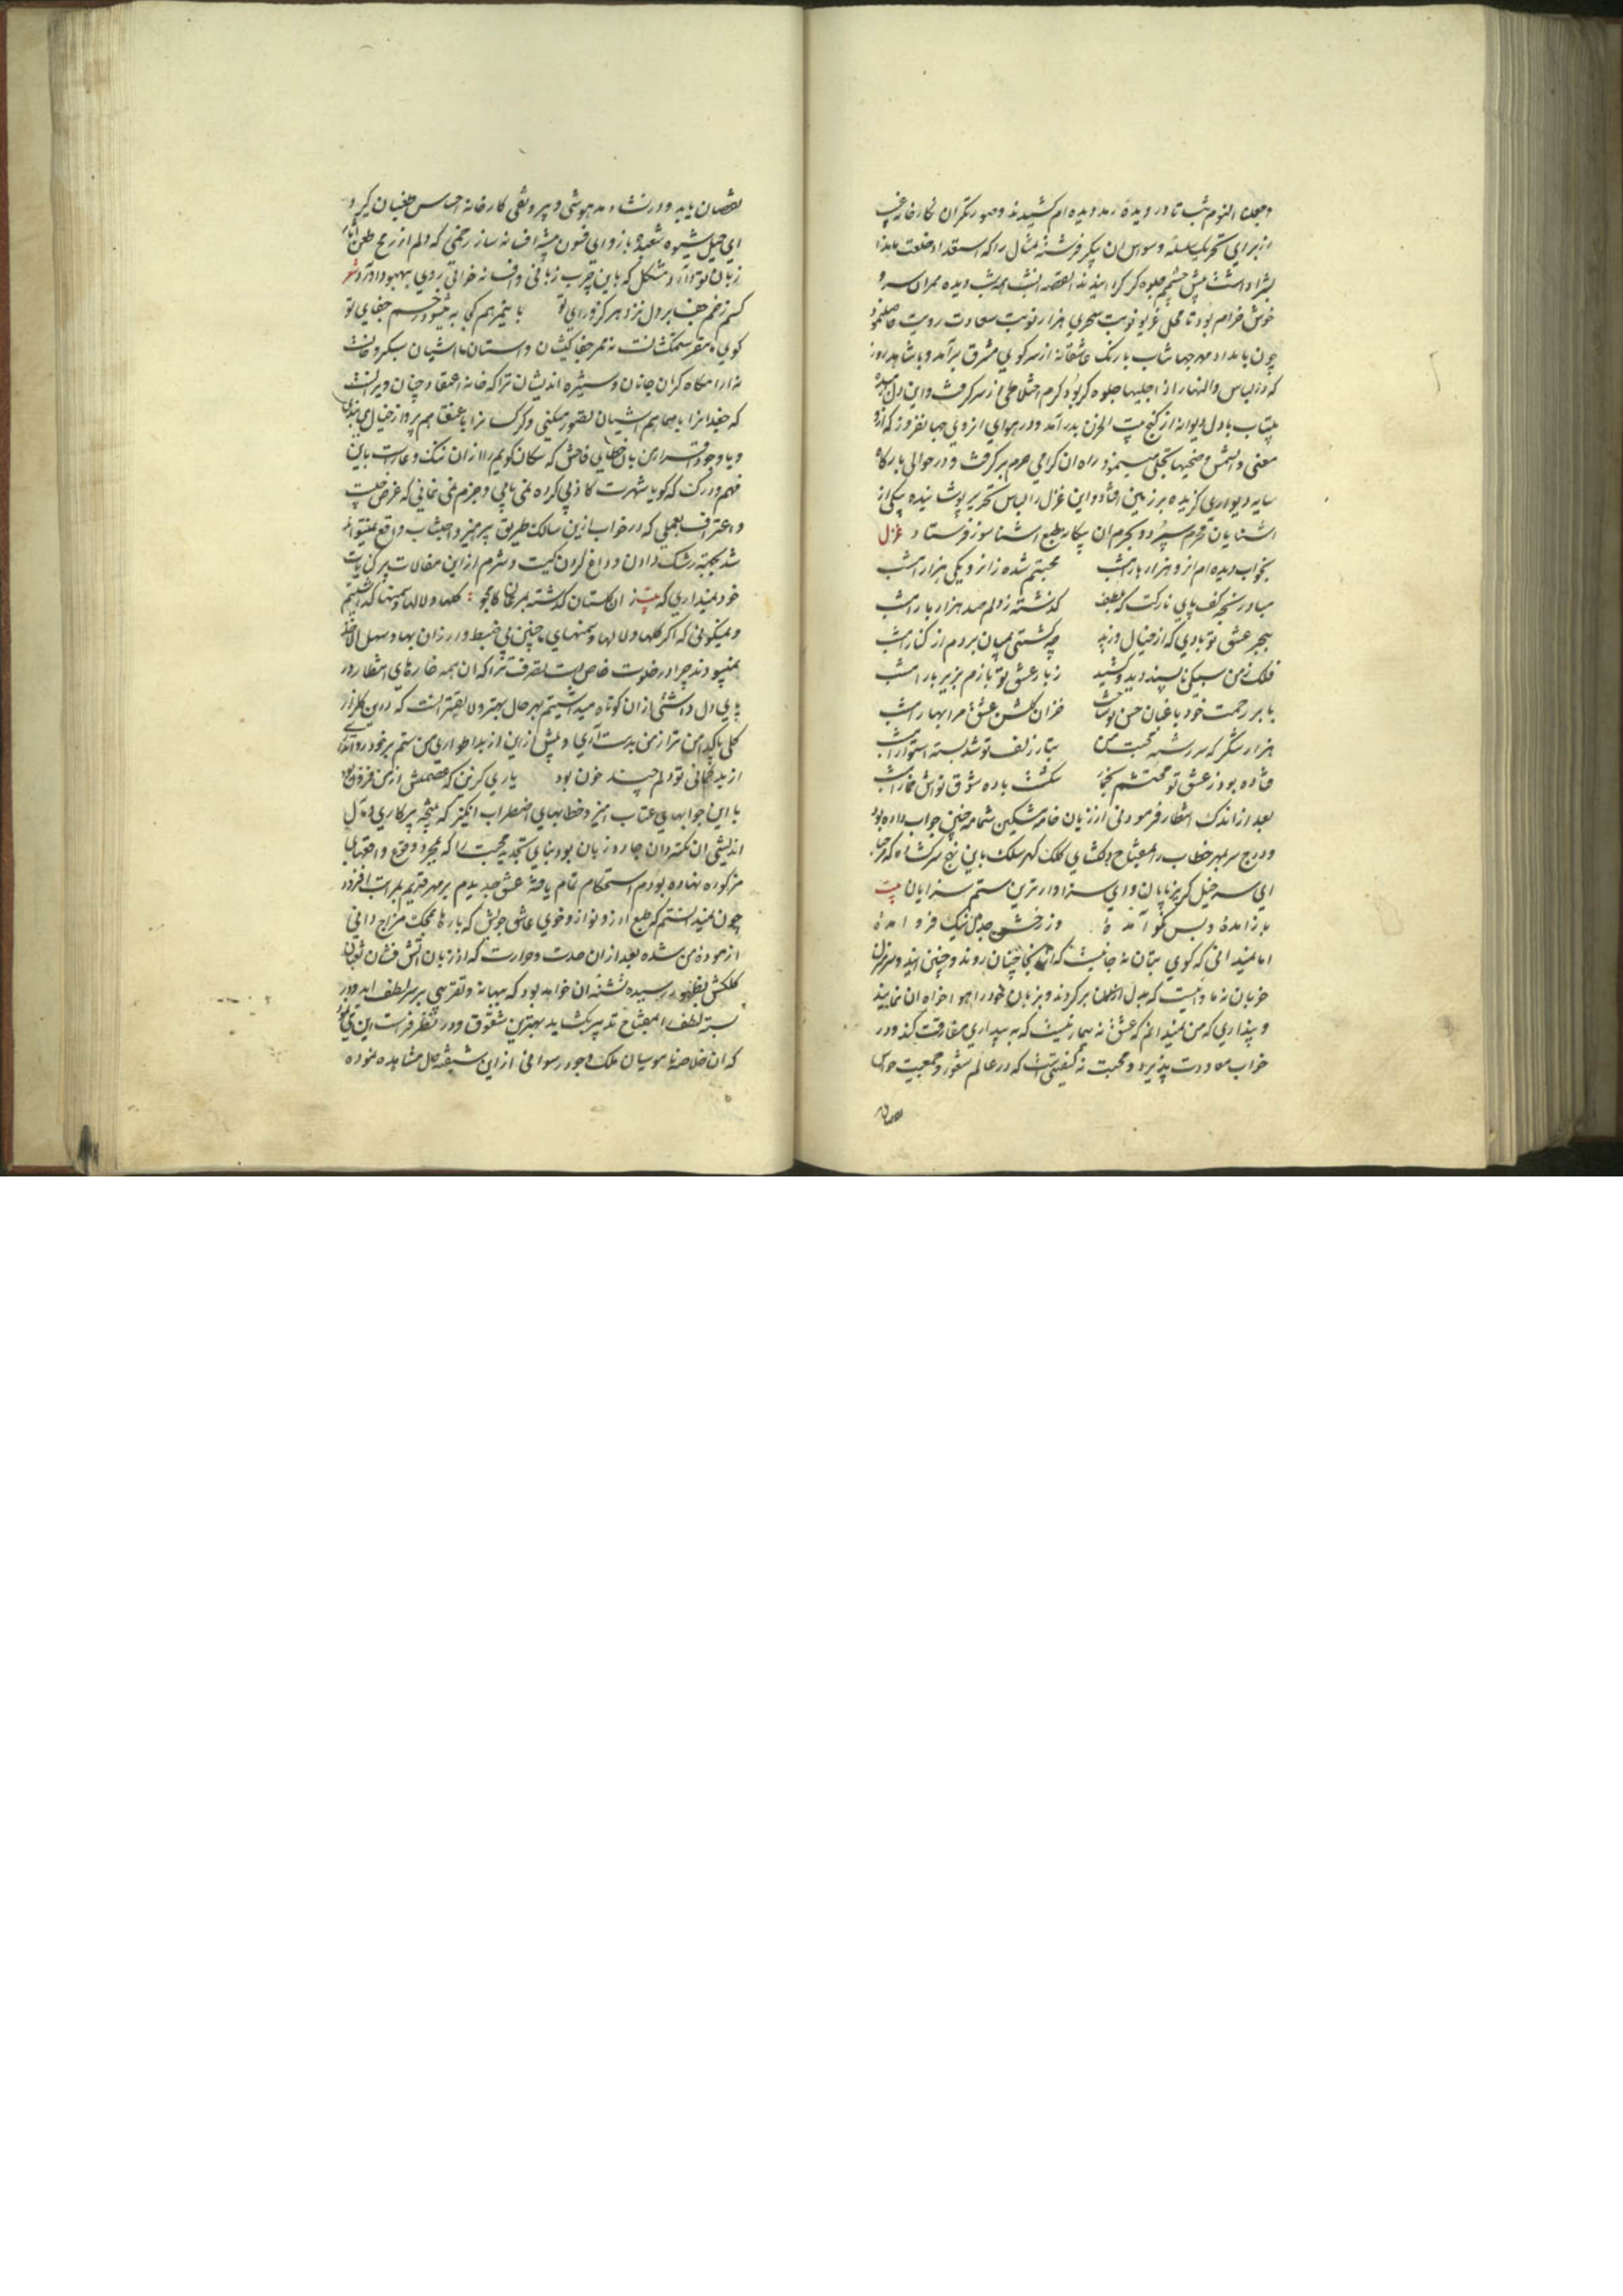 وجعلنا النوم سباتا در دیده رمد دیده ام کشیدند و صورتگران نکارخانه غیب
از برای تحریک سلسله وسواس ان پیکر فرشته مثال را که استعداد خلعت ماهذا
بشرا داشت پیش چشمم جلوه کر کردانیدند القصه انشب همه شب دیده همران سرو
خوش خرام بود تا محل غریو نوبت سحری هزار نوبت سعادت رویت حاصل نمود
چون بامداد مهر جهانتاب بارنک عاشقانه از سر کوی مشرق برآمد و با شاهد روز
که در لباس والنهار اذا جلیها جلوه کر بود کرم اختلاطی از سر کرفت و این دل رمیده
بیتاب با دل دیوانه از کنج بیت الحزن بدر آمد و در هوای انروی جهانفروز که ازو
معنی والشمس وضحیها تجلی مینمود راه ان کرامی حرم بر کرفت و در حوالی بارکاه
سایه دیواری کزیده بر زمین افتاد و این غزل را لباس تحریر پوشانیده بیکی از
اشنایان محرم سپرد و بحرم ان بیکانه طبع اشنا سوز فرستاد غزل
بخواب دیده ام انرو هزار بار امشب محبتم شده زانرو یکی هزار امشب
مباد رنجه کف پای نازکت که بلطف کذشته زدلم صد هزار بار امشب
ببحر عشق تو بادی که از خیال وزید چه کشتی بمیان بردم از کنار امشب
فلک ز من سبکی نا پسند دید و کشید زبار عشق تو بازم بزیر بار امشب
بابر رحمت خود باغبان حسن تو ساخت خزان کلشن عشق مرا بهار امشب
هزار شکر که سررشته محبت من بتار زلف تو شد بسته استوار امشب
فتاده بود ز عشق تو محتشم بخمار شکست باده شوق تواش خمار امشب
بعد از اندک انتظار فرمودنی از زبان خامه مشکین شمامه چنین جواب داده بود
و درج سر بمهر خطاب را بمفتاح دلکشای کلک کهر سلک باین نهج سر کشاده که مرحبا
ای سر خیل کریزپایان و ای سزاوارترین ستم سزایان بیت
باز آمدهٔ و بس نکو آمدهٔ وز رخش جدل نیک فرو آمدهٔ
اما نمیدانی که کوی بتان نه جائیست که از انجا چنان روند و چنین ایند و سر منزل
خوبان نه ماوائیست که بدل ازان بر کردند و بزبان خود را هوا خواه ان نمایند
و پنداری که من نمیدانم که عشق نه بیماریست که به بیداری مفارقت کند و در
خواب معاودت پذیرد و محبت نه کیفیتی است که در عالم شعور و جمعیت حواس
نقصان
نقصان یابد و در نشاء مدهوشی و بیرونقی کارخانه احساس طغیان کیرد
ای حیل شیوه شعبده باز و ای فسون پیشه افسانه ساز زخمی که دلم از رمح طعن
زبان تو دارد مشکل که باین چرب زبانی و افسانه خوانی روی ببهبود آورد شعر
کسم زخم جفا بر دل نزد هرکز ورای تو با ینمرهم کی به میشود زخم جفای تو
کوی ما مقر ستمکشانست نه ممر جفا کیشان و استان ما اشیان سبکروحانست
نه ارامکاه کران جانان و ستیزه اندیشان ترا که خانه اعتقاد چنان ویرانست
که جغدانرا با هما هم اشیان تصور میکنی و کرکسانرا با عنقا هم پرواز خیال می بندی
و با وجود اقرار این بان خطایی فاحش که سکان کویم را از ان ننک و عارست باین
فهم و درک که کویا شهرت کاذبی کرده نمی یابی و جزم نمی نمائی که غرض چیست
و اعتراف بعملی که در خواب ازین سالک طریق پرهیز و اجتناب واقع نمیتواند
شد بجهته رشک دادن و داغ کردن کیست و شرم از این مقالات پر کنایات
خود نمیداری که بیت ز ان کلستان کذشته بمرغان کامجو کلها و لالها و سمنها کذاشتیم
و نمیکوئی که اکر کلها و لالها و سمنهای ما چنین بی ضبط و ارزان بها و سهل الاخذ
نمیبودند چرا در خلوت خاص دست تصرف ترا که ان همه خارهای انتظار در
پای دل داشتی از ان کوتاه میداشتیم بهر حال بهتر و لایقتر انست که درین کلزار
کلی پاکدامن تر از من بدست آری و بیش ازین از بد اطواری من ستم بر خود روا نداری
از بد کمانی تو دلم چند خون بود یاری کزین که عصمتش از من فزون بود
با این جوابهای عتاب امیز و خطابهای اضطراب انکیز که نتیجه پرکاری و مآل
اندیشی ان نکته دان جادو زبان بود بنای تجدید محبت را که بمجرد وقوع واقعهای
مذکوره نهاده بودم استحکام تمام یافته عشق جدیدم بر مهر قدیم بمراتب افزود
چون نمیدانستم که طبع آرزو نواز و خوی عاشق جویش که بارها بمحک مزاج دانی
ازموده من شده بعد از ان حدت و حرارت که از زبان اتش فشان ثعبان
کلکش بظهور رسیده تشنه ان خواهد بود که ببهانه و تقریبی بر سر لطف اید و در
بسته لطف را بمفتاح تدبیر بکشاید بهترین شقوق در نظر فراست این می نمود
که ان خلاصه ناموسیان ملک وجود رسوائی از این شیفته حال مشاهده نموده